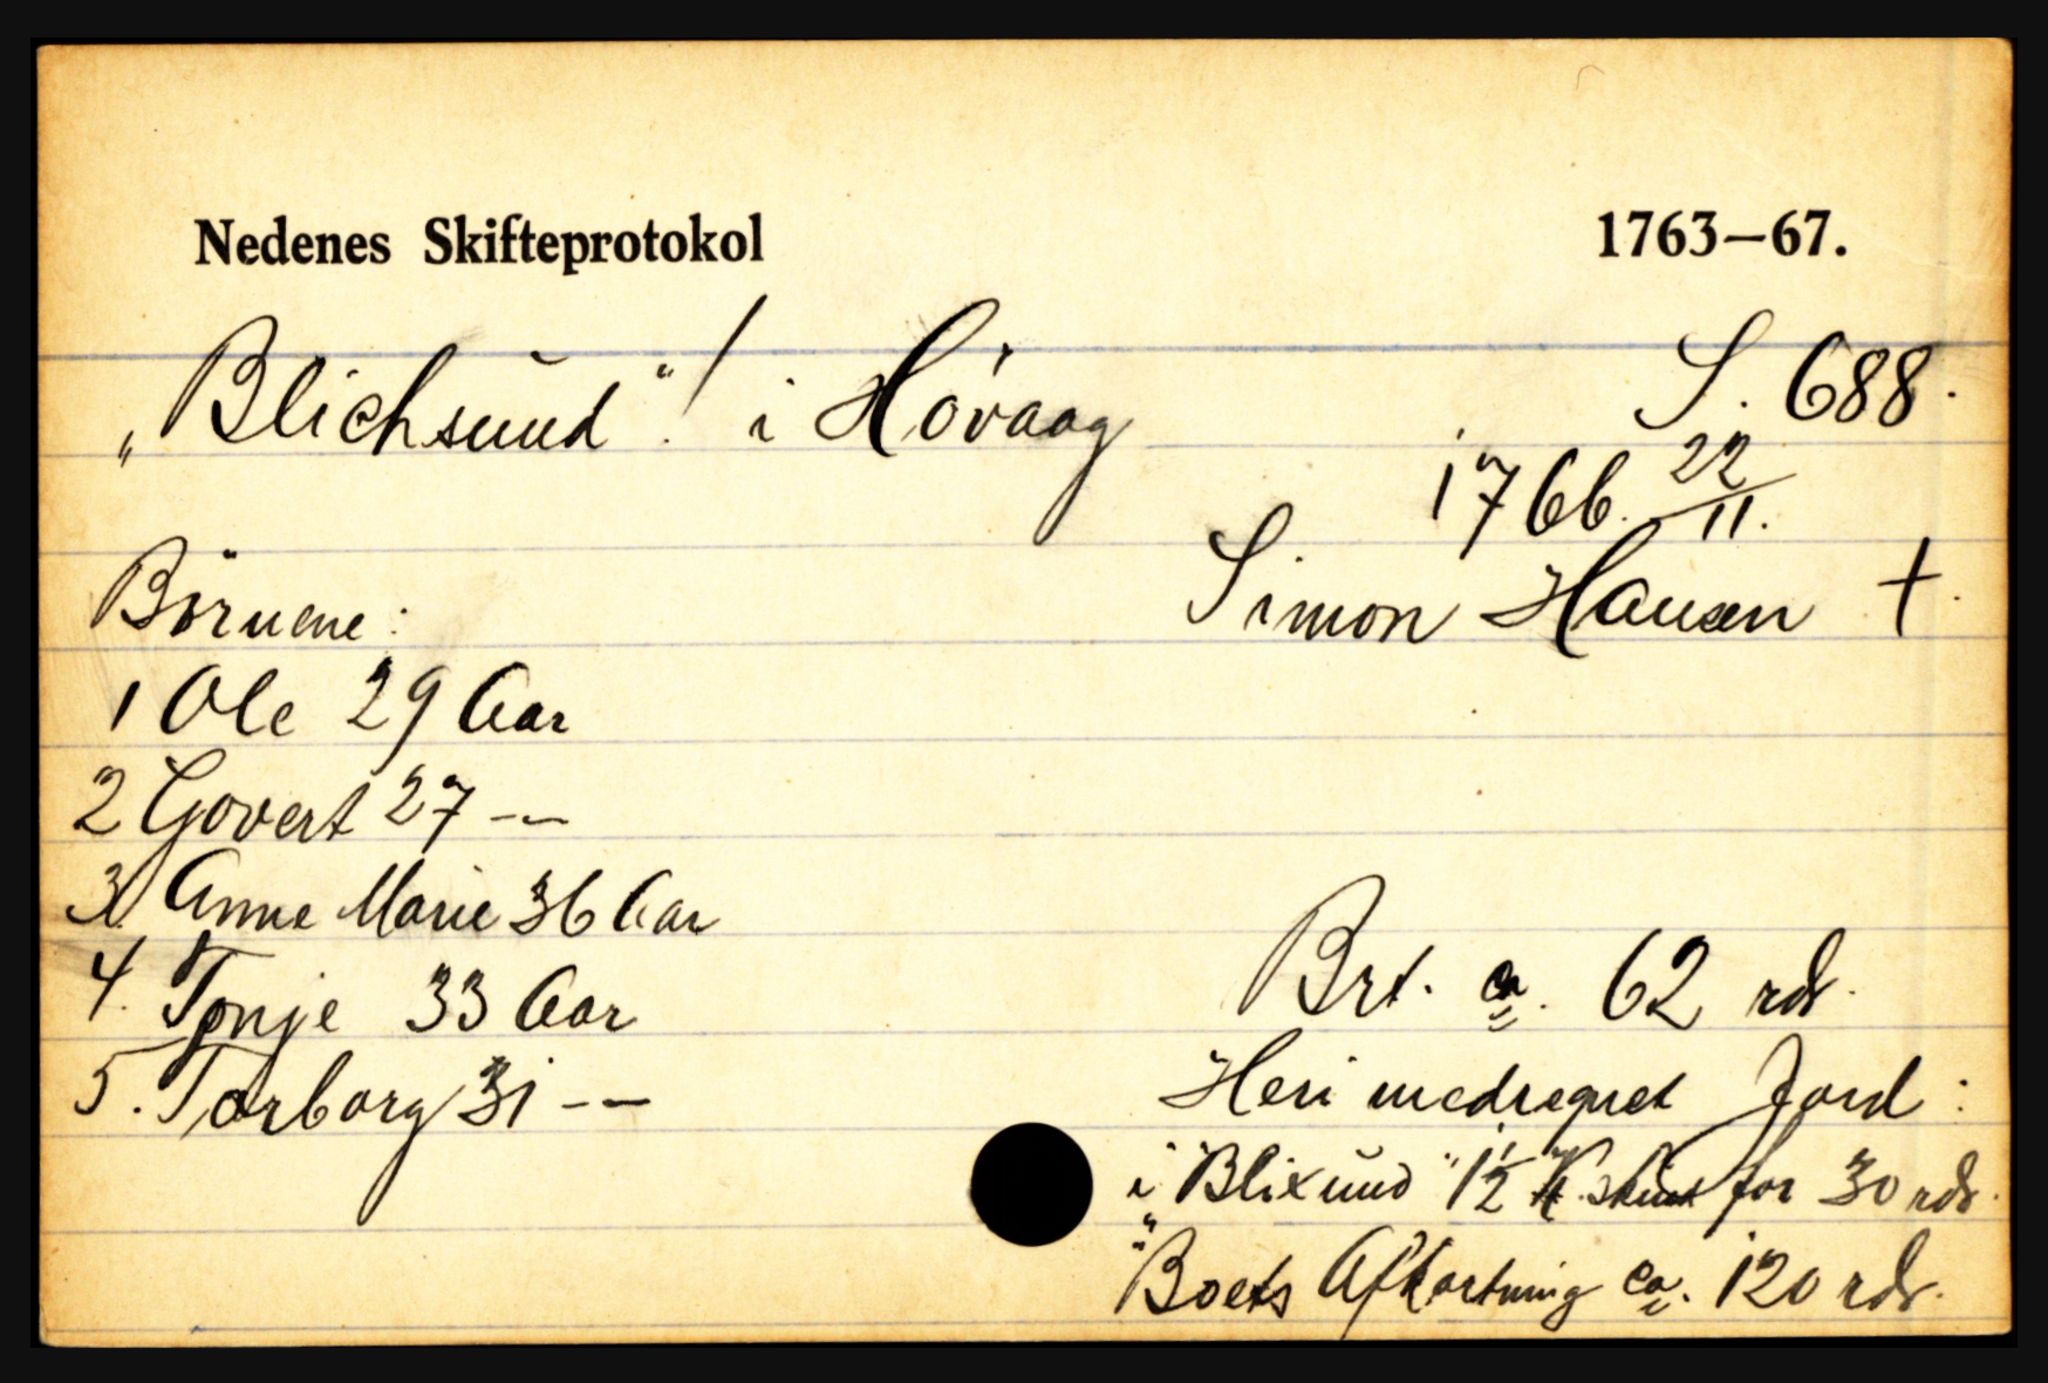 Nedenes Skifteprotokol 1763—67.
„Blichsund“! i Høvaag S. 688.
1766. 22/11.
Simon Hansen †.
Børnene:
1 Ole 29 Aar
2 Govert 27 --
3. Anne Marie 36 Aar
4. Tonje 33 Aar
5. Torborg 31 --
Brt. ca. 62 rdr.
Heri medregnet Jord:
i "Blixund" 1/2 K. skind for 30 rdr.
"Boets Afkortning ca. 120 rdr.